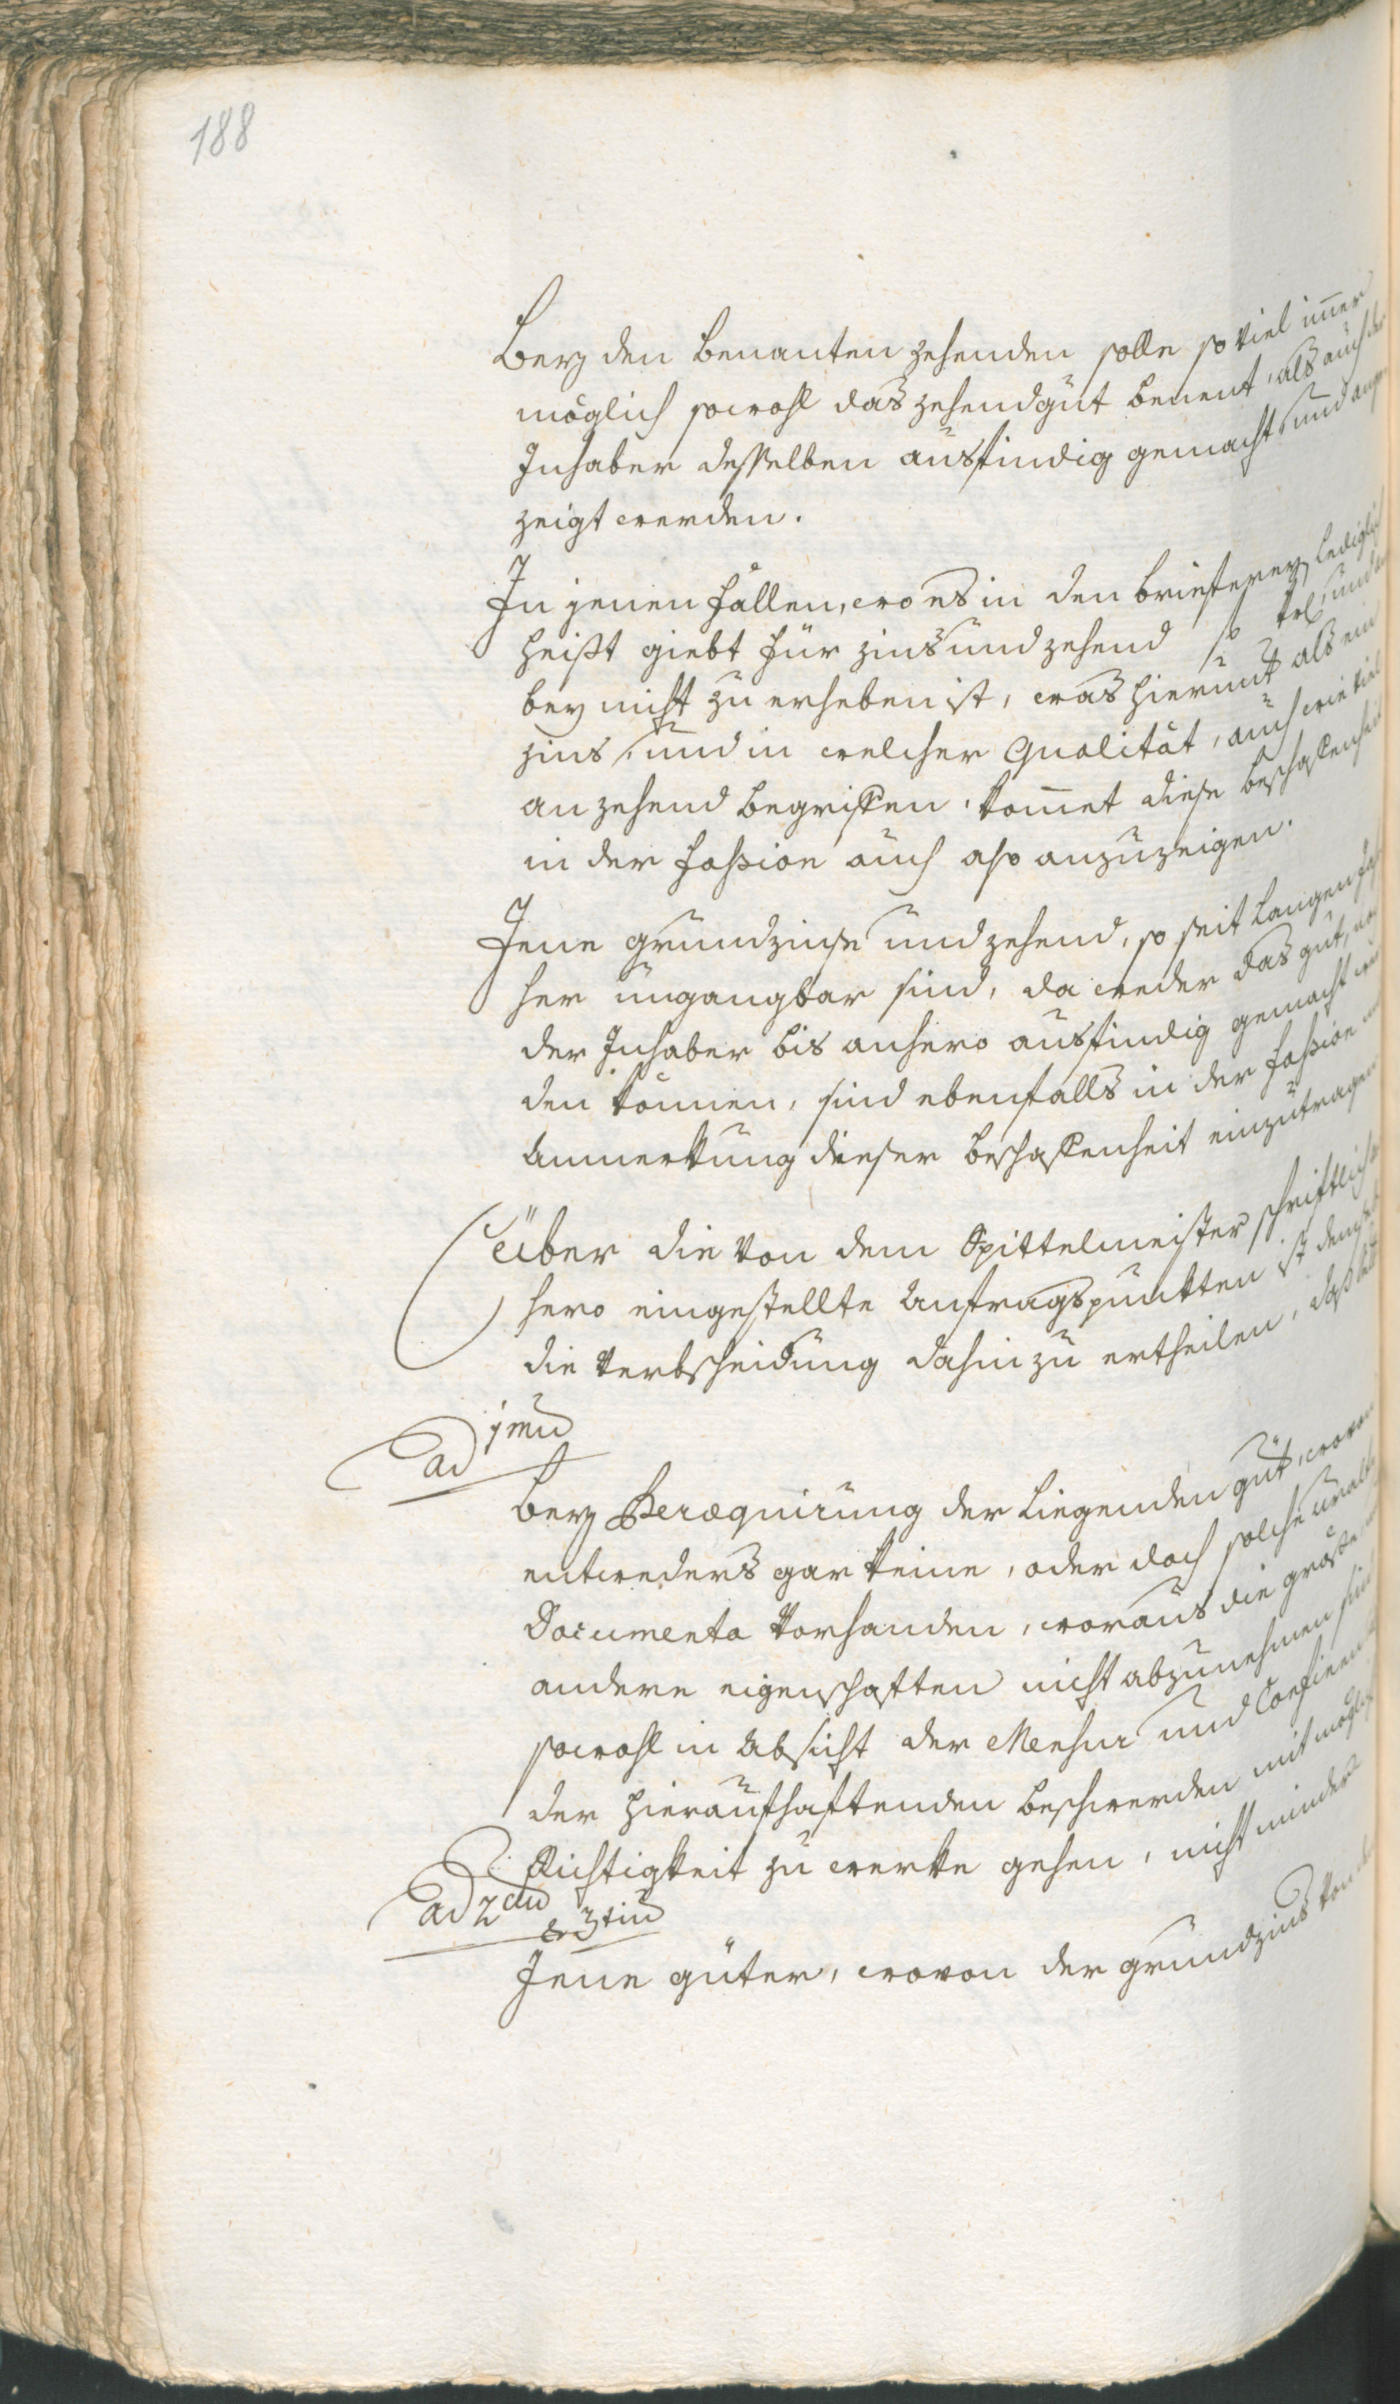 188
Bey den benanten zehenden solle so viel im̄er
möglich sowohl das zehendgut benent, als auch der
Inhaber desselben ausfindig gemacht, und ange
zeigt werden.
In jenen fällen, wo es in den briefereyen lediglich
heißt giebt für zins und zehend so
bey nicht zu erheben ist, was hierunt als ein
zins, und in welcher Qualität, auch wie viel
an zehend begriffen, kom̄et diese beschaffenheit
in der fassion auch also anzuzeigen.
Jene grundzinse und zehend, so seit langen Jah
her ungangbar sind, da weder das gut, noch
der Inhaber bis anhero ausfindig gemacht wer
den können, sind ebenfalls in der fassion
Anmerkung dieser beschaffenheit einzutragen
Über die von dem Spittelmeister schriftlich
hero eingestellte Anfragspunkten ist demselb
die verbscheidung dahin zu ertheilen, daß
ad 1mu
bey Peraequirung der liegenden güt, wovon
entweders gar keine, oder doch solche uralte
Documenta vorhanden, woraus die größe,
andere eigenschaften nicht abzunehmen sind
sowohl in Absicht der Mensur und Confinen
der hierauf haftenden beschwerden mit möglich
Richtigkeit zu werke gehen, nicht minder
ad 2du
& 3tiu
Jene güter, wovon der grundzins von